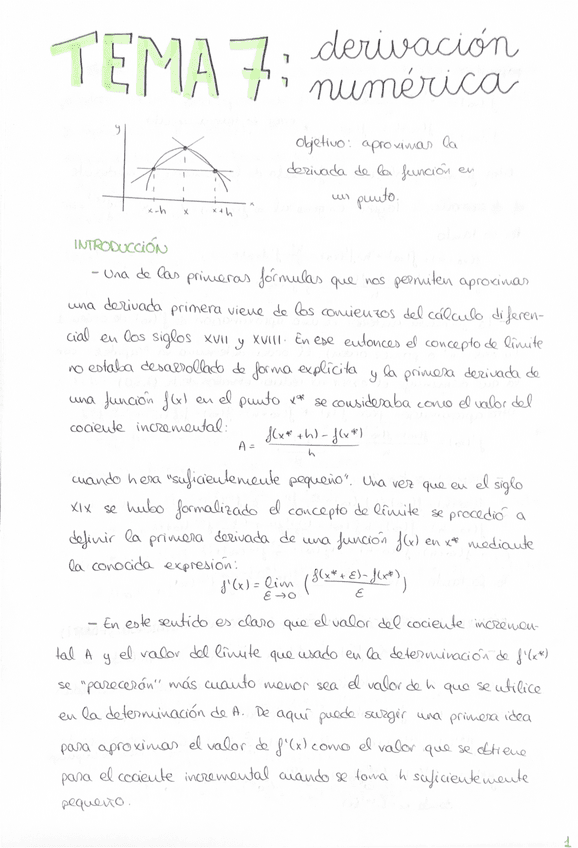 TEMA 7: derivación
numérica
y
x-h x x+h x
objetivo: aproximar la
derivada de la función en
un punto.
INTRODUCCIÓN
- Una de las primeras fórmulas que nos permiten aproximar
una derivada primera viene de los comienzos del cálculo diferen-
cial en los siglos XVII y XVIII. En ese entonces el concepto de límite
no estaba desarrollado de forma explícita y la primera derivada de
una función f(x) en el punto x* se consideraba como el valor del
cociente incremental:
A = f(x* + h) - f(x*) / h
cuando h era "suficientemente pequeño". Una vez que en el siglo
XIX se hubo formalizado el concepto de límite se procedió a
definir la primera derivada de una función f(x) en x* mediante
la conocida expresión:
f'(x) = lim ε→0 (f(x* + ε) - f(x*) / ε)
- En este sentido es claro que el valor del cociente incremen-
tal A y el valor del límite que usado en la determinación de f'(x*)
se "parecerán" más cuanto menor sea el valor de h que se utilice
en la determinación de A. De aquí puede surgir una primera idea
para aproximar el valor de f'(x) como el valor que se obtiene
para el cociente incremental cuando se toma h suficientemente
pequeño.
1